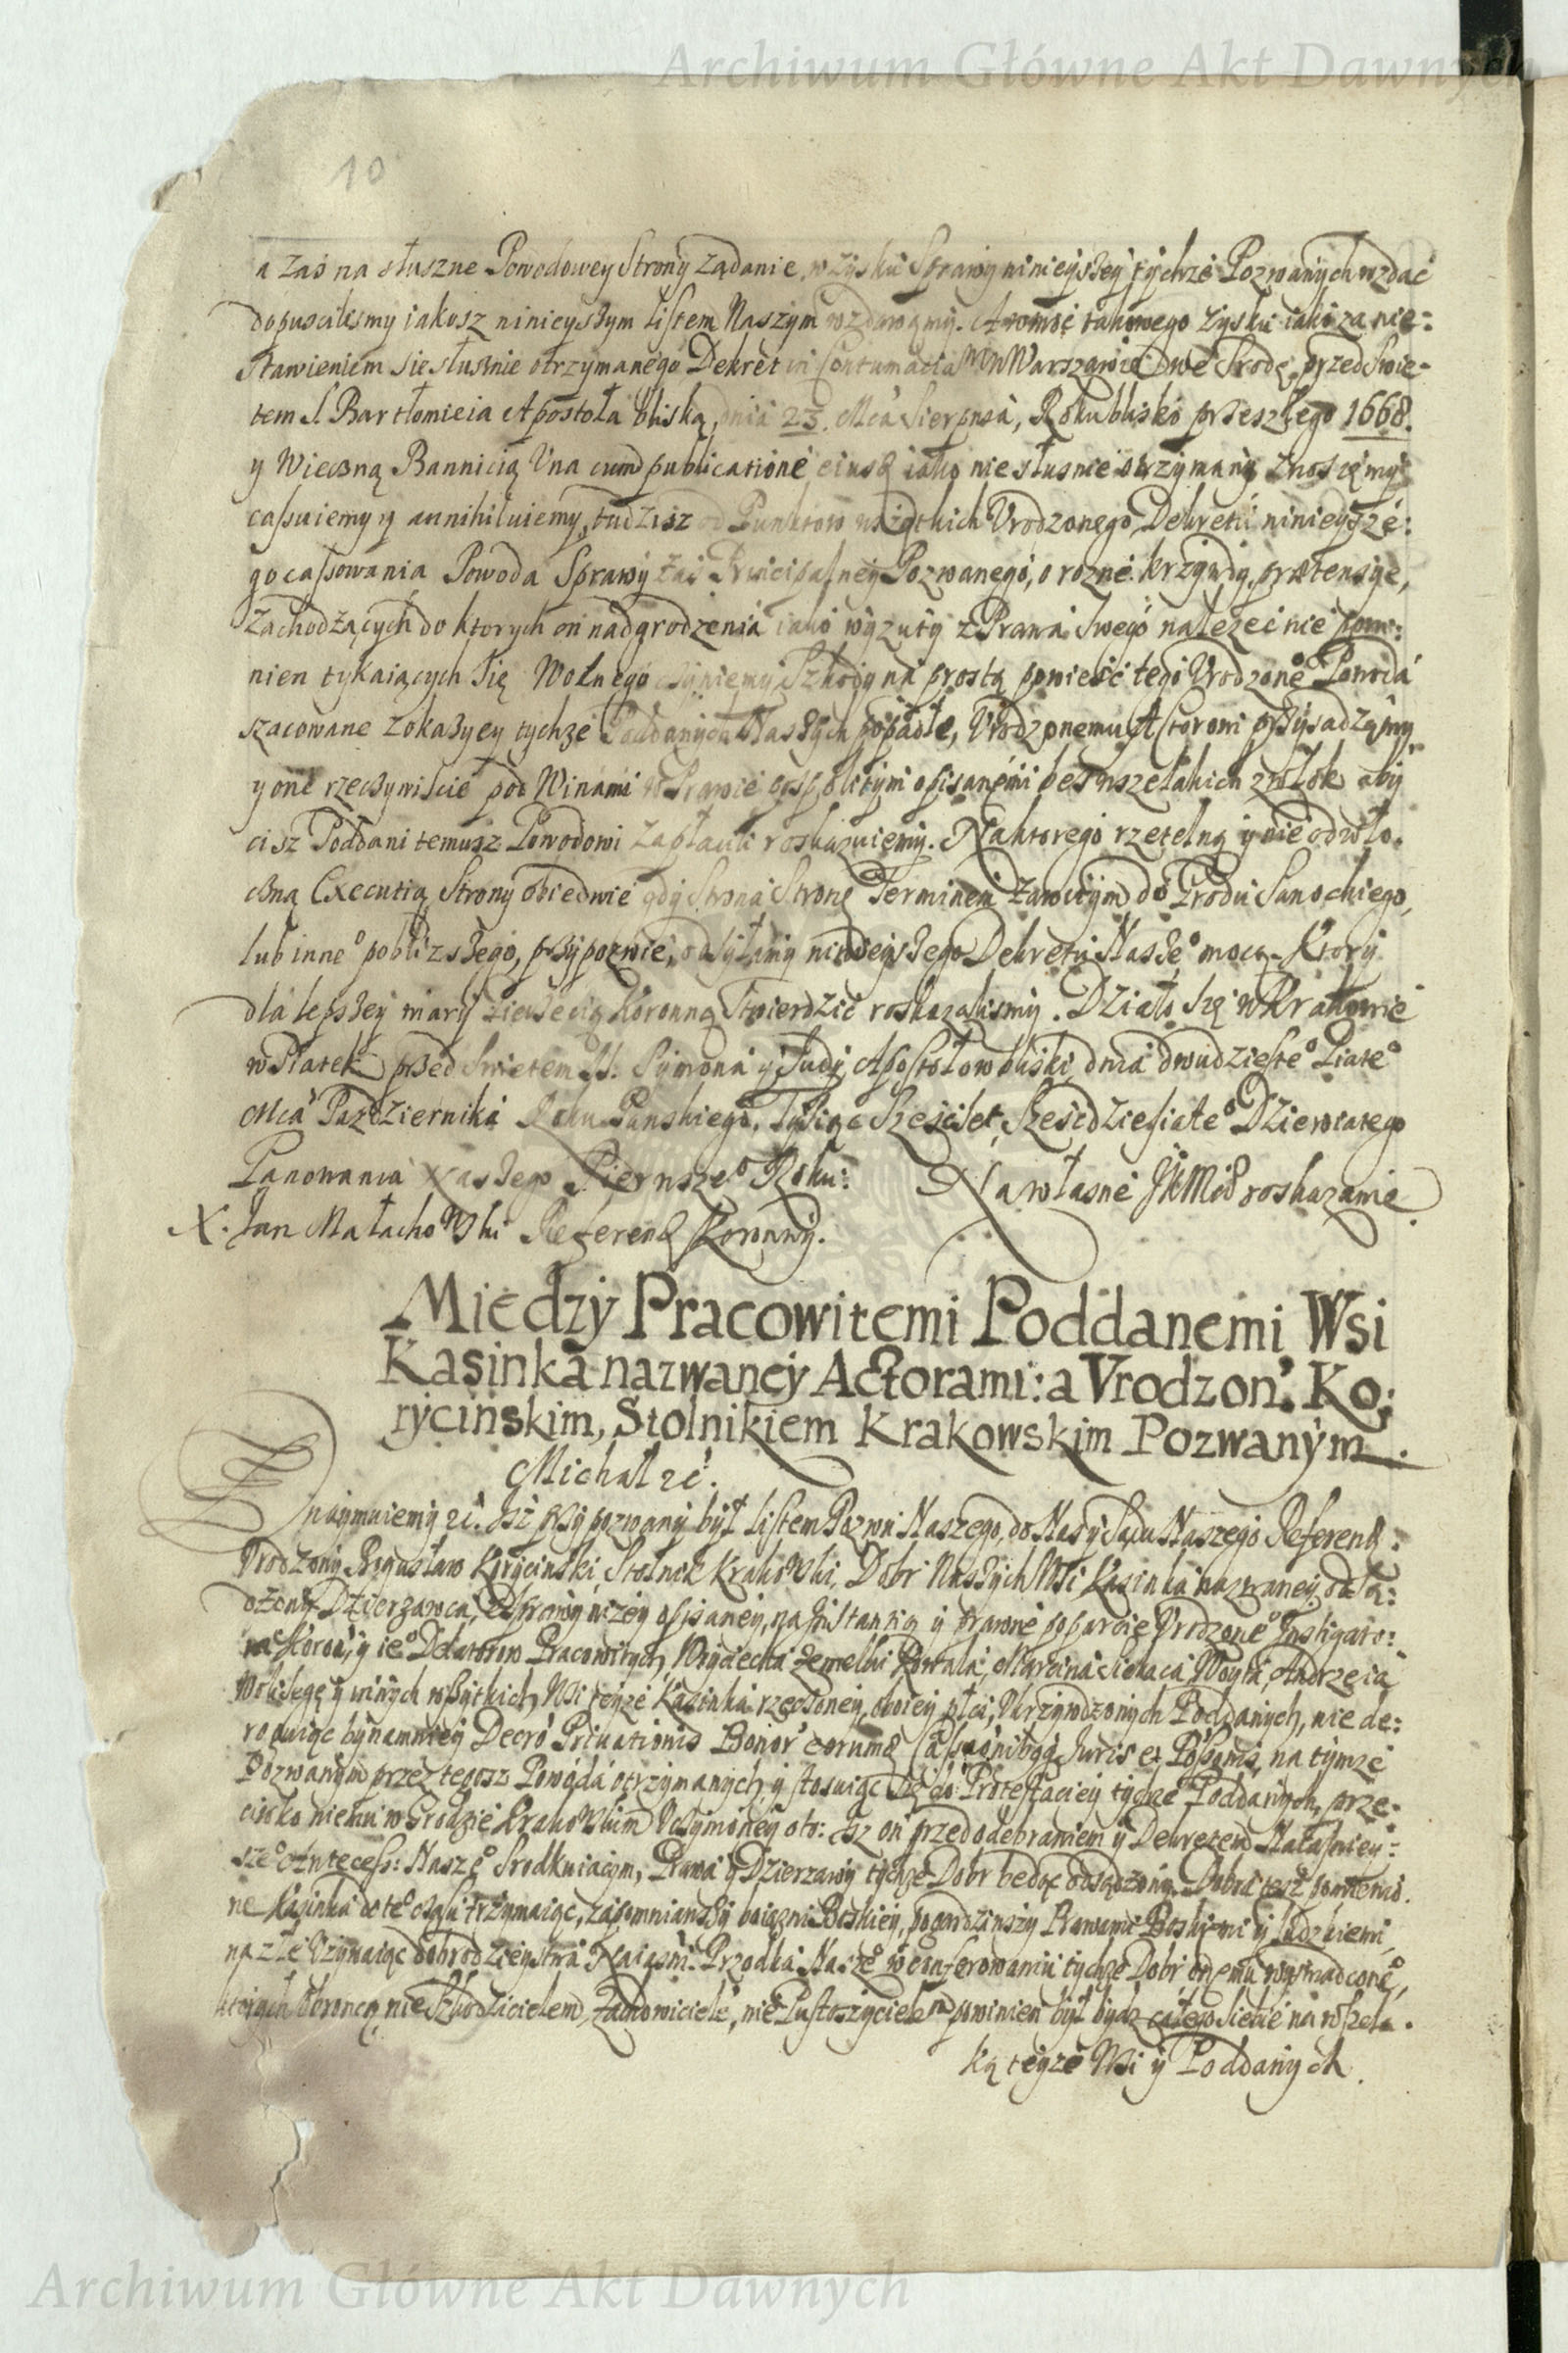 Archiwum Główne Akt Dawnych
10
a zaś na słuszne Powodowey Strony ządanie, w zysku Sprawy ninieyszey tychże Pozwanych wzdać
dopuscilismy iakosz ninieyszym listem Naszym wzdawamy. A ... takowego zysku iako za nie:
stawieniem sie słusznie otrzymanego Dekret in Contumaciam w Warszawie we Srodę przed Swie-
tem S. Bartłomieia Apostoła bliską, dnia 23. Mca Sierpnia, Roku blisko przeszłego 1668.
y Wieczną Bannicią Una cum publicatione eiusq iako niesłusznie otrzymany znosięmy
cassuiemy y annihiluiemy, tudzisz od Punktow wszytkich Urodzonego, Dekretu ninieyszé:
go cassowania Powoda Sprawy zaś Principalney Pozwanego, o rozne krzywdy, prætensye,
Zachodzących do ktorych on nadgrodzenia iako wyzuty z Prawa Swego nalezeć nie powi:
nien tykaiących się Wolnego czyniemy, Szkody na prostą powieść tego Urodzone° Powoda
szacowane z okazyey tychże Poddanych Naszych popadłe, Urodzonemu Actorowi przysadzamy
y one rzeczywiscie pod Winami w Prawie pospolitym opisanemi bez wszelakich zwłok aby
cisz Poddani temusz Powodowi zapłacili roskazuiemy. Na ktorego rzetelną y nie odwło.
czną Executią Strony obiedwie gdy Strona Stronę Terminem zawitym do Grodu Sanockiego,
lub inne° poblizszego, przypozwie, odsyłamy ninieyszego Dekretu Nasze° mocą. Ktory
dla lepszey wiary pieczęcią Koronną Stwierdzić roskazalismy. Działo Się w Krakowie
w Piątek przed Swietem SS. Symona y Judy Apostołow bliski, dnia dwudzieste° Piąte°
Mca Pazdziernika Roku Panskiego, Tysiąc Szescset Szescdziesiąte° Dziewiątego
Panowania Naszego Pierwsze° Roku: Na własne JKMci roskazanie
X. Jan Małachowski Referend Koronny.
Miedzy Pracowitemi Poddanemi Wsi
Kasinka nazwaney Actorami: a Vrodzon. Ko:
rycinskim, Stolnikiem Krakowskim Pozwanym.
Michał ec.
Znaymuiemy ec. Isz przypozwany był listem Pozwu Naszego, do Nas y Sądu Naszego Referend:
Vrodzony Bogusław Koryciński, Stolnik Krakowski, Dobr Naszych Wsi Kasinka nazwaney odsą:
dzony Dzierzawca, Z Sprawy nizey opisaney, na Instantią y prawne poparcie Vrodzone° Instigato:
ra Koron, y ie° Delatorow Pracowitych, Woyciecha ... Kowala, Marcina ... Woyta, Andrzeia
... y innych wszytkich Wsi teyze Kasinka rzeczoney, oboiey płci, Ukrzywdzonych Poddanych, nie de:
roguiąc bynamniey Decro Privationis Bonor eorumq Cassationibqq Juris et Possonis, na tymze
Pozwanym przez tegosz Powoda otrzymanych, y stosuiąc się do Protestaciey tychze Poddanych, prze:
ciwko niemu w Grodzie Krakowskim Uczynioney oto: Isz on przed odebraniem y Dekretem Naiasniey:
sze° Antecess: Nasze° Srodkuiącym, Prawa y Dzierzawy tychze Dobr bedąc odsądzony. Dobra tesz pomienio.
ne Kasinka do te° czasu trzymaiąc, zapomniawszy boiazni Boskiey, pogardziwszy Prawami Boskiemi y ludzkiemi,
na złe Uzywaiąc dobrodzieystwa Naiasni: Przodka Nasze° w conferowaniu tychze Dobr onemu wyswiadczone°,
ktorych Obroncą nie Szkodzicielem, Zachowiciele, nie Pustoszycielem powinien był bydz całego siebie na wszela.
ką teyze Wsi y Poddanych.
Archiwum Główne Akt Dawnych